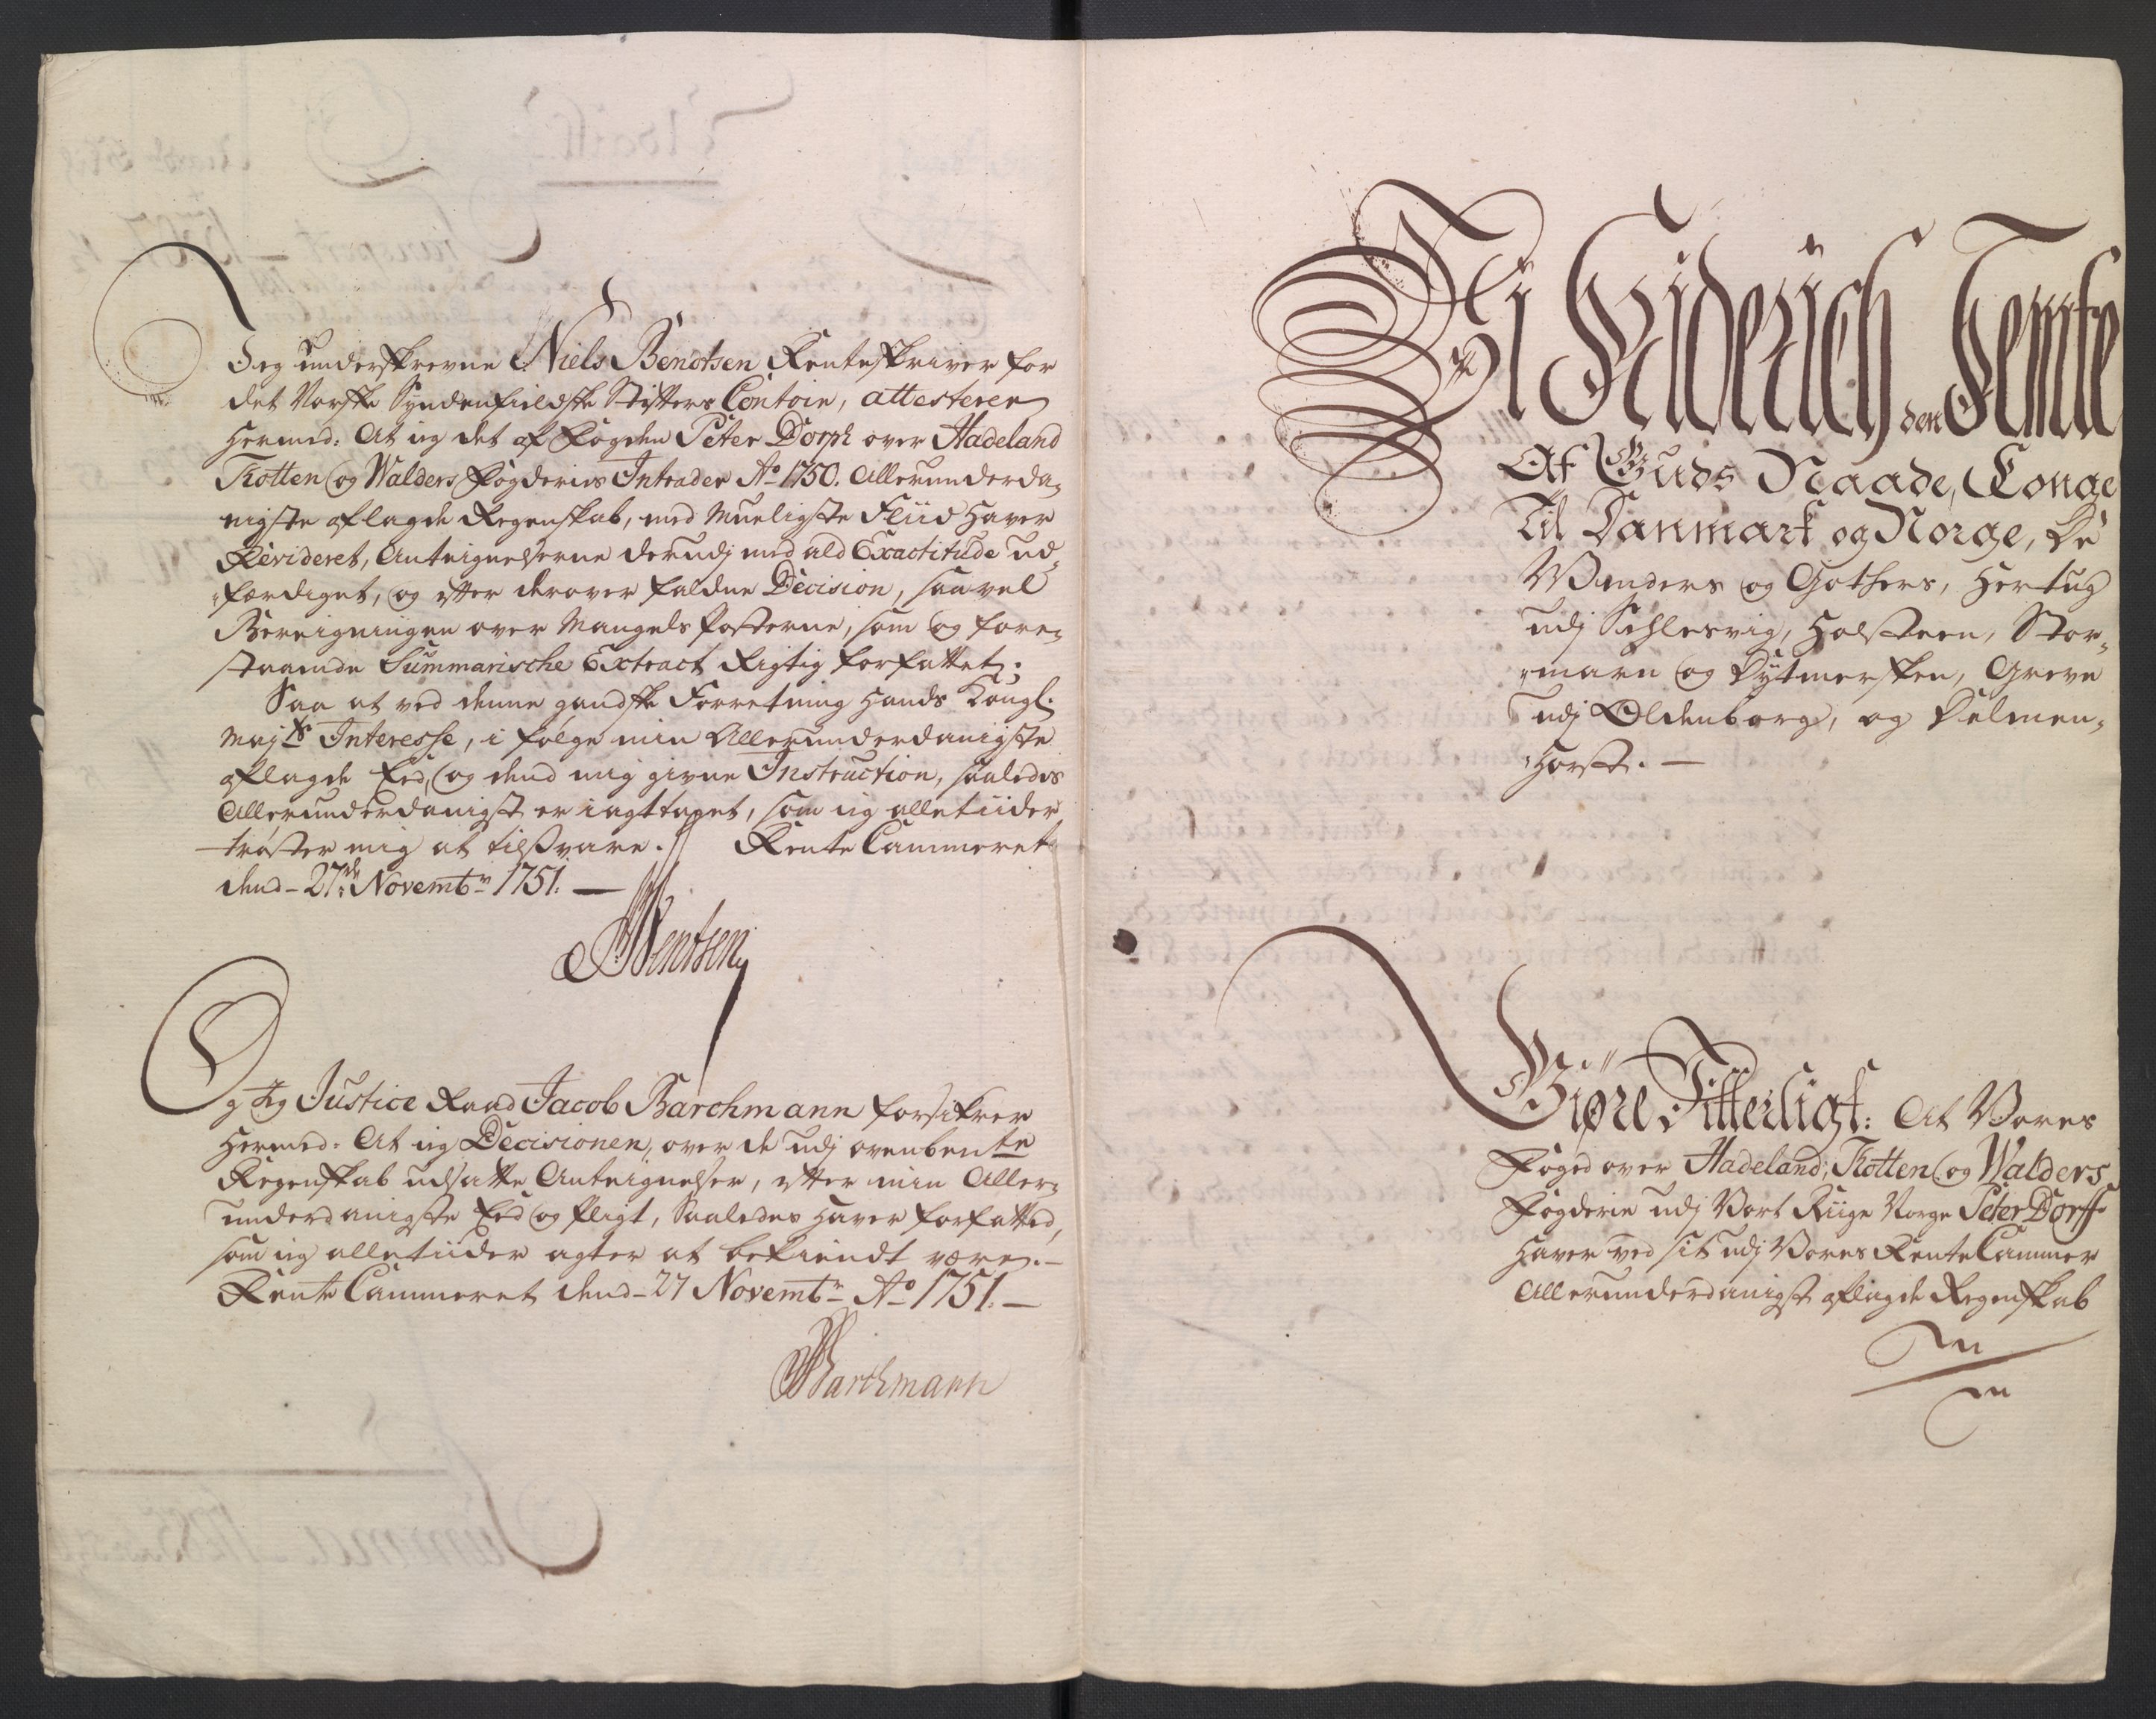 Jeg underskrevne Niels Bendtsen Renteskriver for
det Norske Syndenfieldske Stifters Contoir, attesterer
Hermed: At ieg det af Fogden Peter Dorph over Hadeland
Totten og Walders Fogderies Intrader Ao 1750. Allerunderda-
nigste aflagde Regenskab, med Mueligste Fliid Haver
Revideret, Antegnelserne derudj med ald Exactitude ud-
færdiget, og etter derover faldne Decision, saavel
Beregningen over Mangels Posterne, som og fore-
staaende Summarische Extract Rigtig forfattet.
Saa at ved denne gandske Forretning Hands Kongl.
Majts Interesse, i følge min Allerunderdanigste
aflagde Eed, og dend mig givne Instruction, saaledes
Allerunderdanigst er iagttaget, som ieg alletiider
trøster mig at tilsvare. // Rente Cammeret
dend 27de Novembr 1751. —
NBentsen
Og Jeg Justice Raad Jacob Barchmann forsikrer
Hermed: At ieg Decisionen, over de udj ovenbente
Regenskab udsatte Antegnelser, etter min Aller-
underdanigste Eed og Pligt, Saaledes Haver forfatted,
som ieg alletiider agter at bekiendt være. —
Rente Cammeret dend 27 Novembr Ao 1751. —
JBarchmann
Vi Friderich den Femte
Af Guds Naade, Konge
Til Danmark og Norge, De
Wenders og Gothers, Hertug
udj Schlesvig, Holsteen, Stor-
marn og Dytmersken, Greve
udj Oldenborg, og Delmen-
Horst. —
Giøre Vitterligt: At Vores
Foged over Hadeland, Totten og Walders
Fogderie udj Vort Riige Norge Peter Dorff
Haver ved sit udj Vores Rente Cammer
Allerunderdanigst aflagde Regenskab